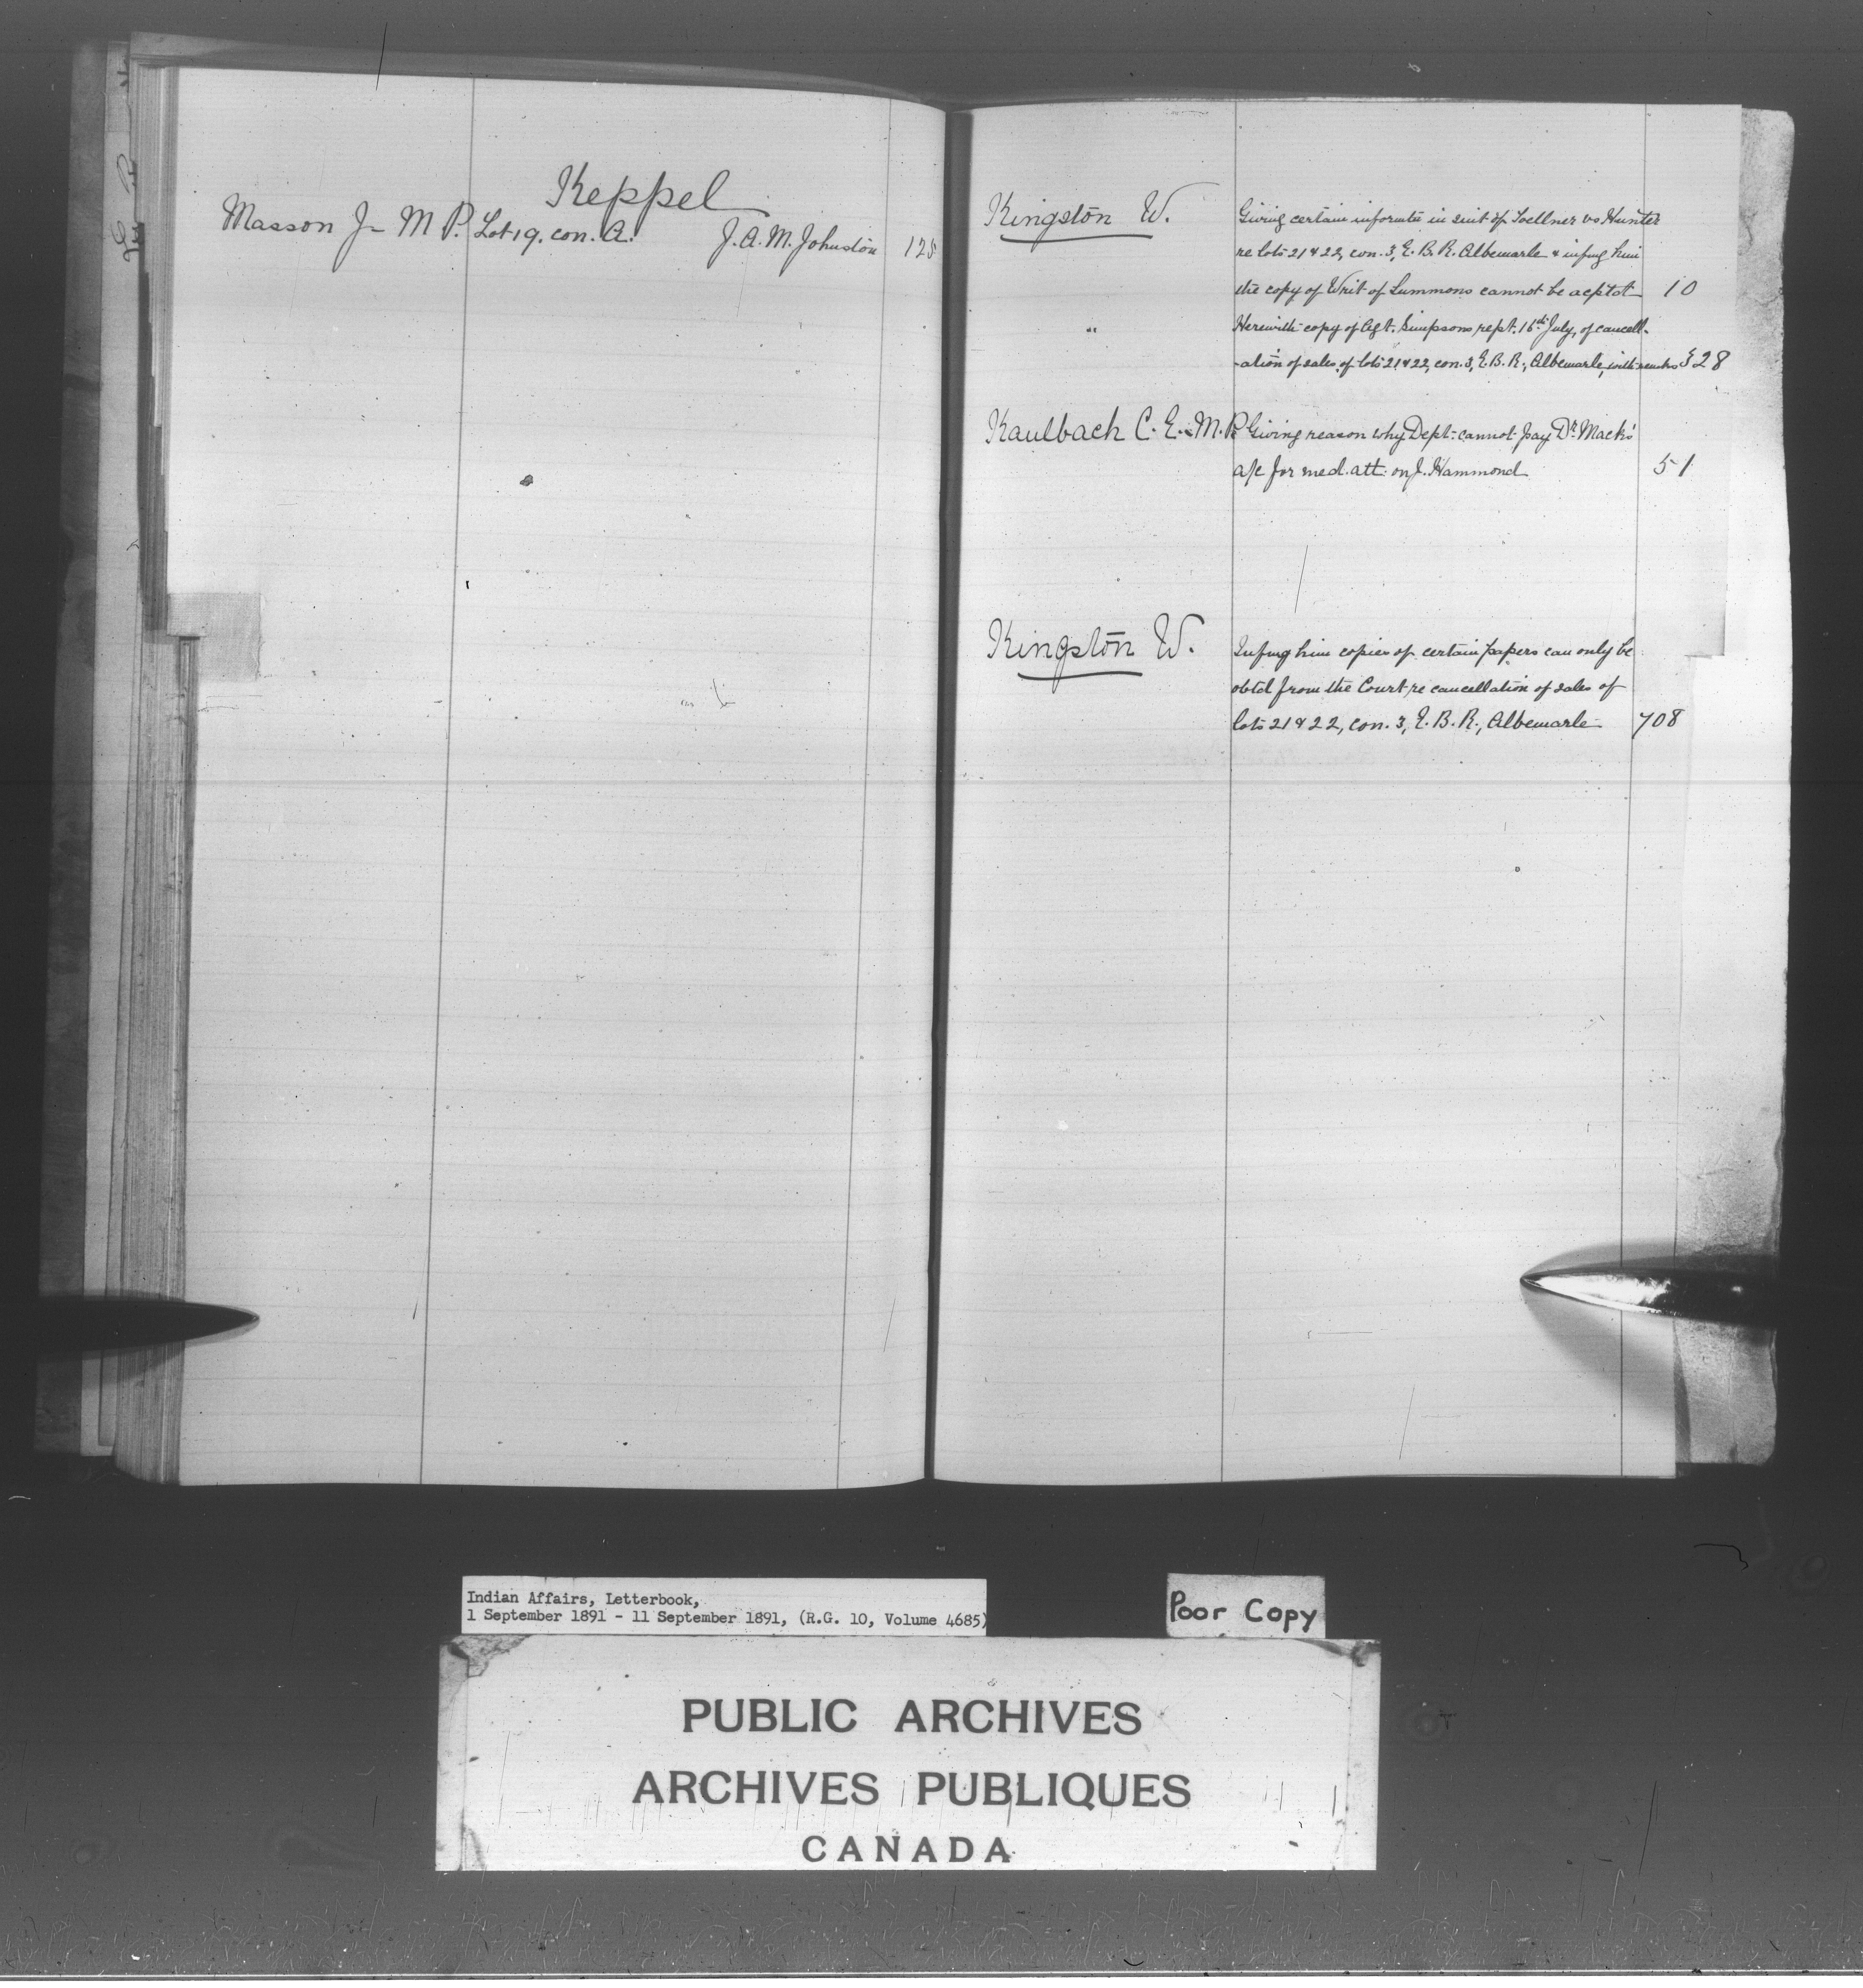 Keppel
Masson J- M P. Lot 19. con. A. J. A. M. Johnston 125
Kingston W. Giving certain informtn in suit of Toellner vs Hunter
re lots 21 & 22, con. 3, E. B. R. Albemarle & infmg him
the copy of Writ of Summons cannot be acptd 10
" Herewith copy of Agt. Simpsons rept. 16th July, of cancell-
-ation of sales of lots 21 & 22, con. 3, E. B. R., Albemarle, with remks 328
Kaulbach C. E. M. P. Giving reason why Dept. cannot pay Dr. Mack's
a/c for med. att. on J. Hammond 51
Kingston W. Infmg him copies of certain papers can only be
obtd from the Court re cancellation of sales of
lots 21 & 22, con. 3, E. B. R., Albemarle 708
Indian Affairs, Letterbook,
1 September 1891 - 11 September 1891, (R.G. 10, Volume 4685)
Poor Copy
PUBLIC ARCHIVES
ARCHIVES PUBLIQUES
CANADA